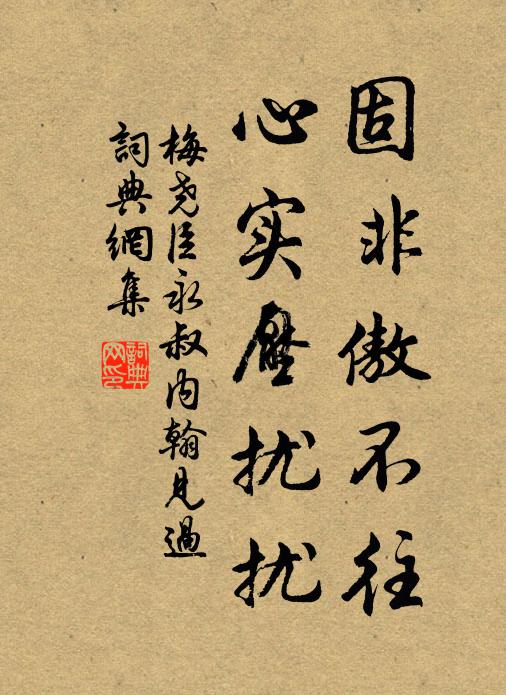 固非傲不往
心实厭扰扰
梅尧臣永叔内翰见過
詞典網集
詞典
网印